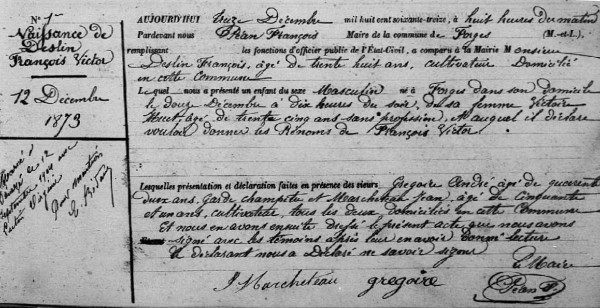 N° 7
Naissance de
Deslin
François Victor
12 Décembre
1873
Marié à
le 12
septembre 1901 avec
Dont mention
AUJOURD'HUI treize Décembre mil huit cent soixante-treize, à huit heures du matin
Pardevant nous Péan François Maire de la commune de Forges (M.-et-L.),
remplissant les fonctions d'officier public de l'État-Civil, a comparu à la Mairie Monsieur
Deslin François, âgé de trente huit ans, cultivateur Domicilié
en cette Commune
Lequel nous a présenté un enfant du sexe Masculin né à Forges dans son domicile
le douze Décembre à dix heures du soir, de sa femme Victoire
Huet, âgé de trente cinq ans sans profession, et auquel il déclare
vouloir donner les Prénoms de François Victor
Lesquelles présentation et déclaration faites en présence des sieurs Gregoire André âgé de quarente
deux ans, garde champêtre et Marcheteau Jean, âgé de Cinquante
et un ans, cultivateur tous les deux domiciliés en cette Commune
Et nous en avons ensuite dressé le présent acte que nous avons
signé avec les témoins après leur en avoir donné lecture
Le déclarant nous a Déclaré ne savoir signer
Le Maire
J Marcheteau gregoire Péan F